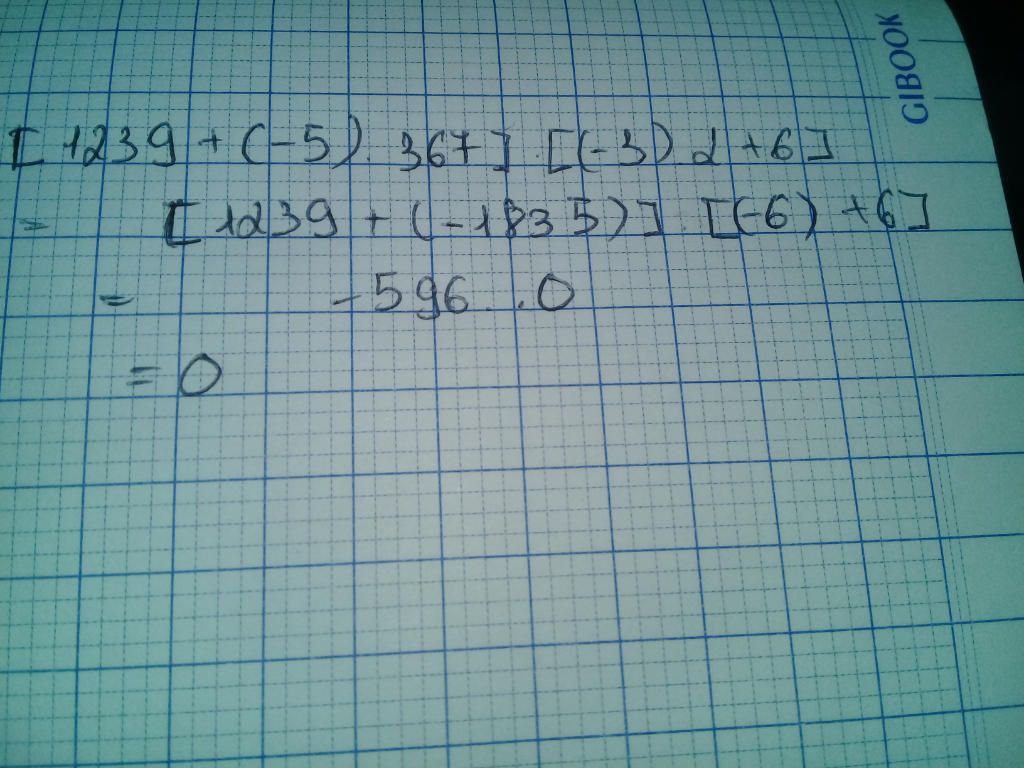 [1239 + (-5). 367] . [(-3) 2 +6]
= [1239 + (-1835)] . [(-6) +6]
= -596 . 0
= 0
GIBOOK